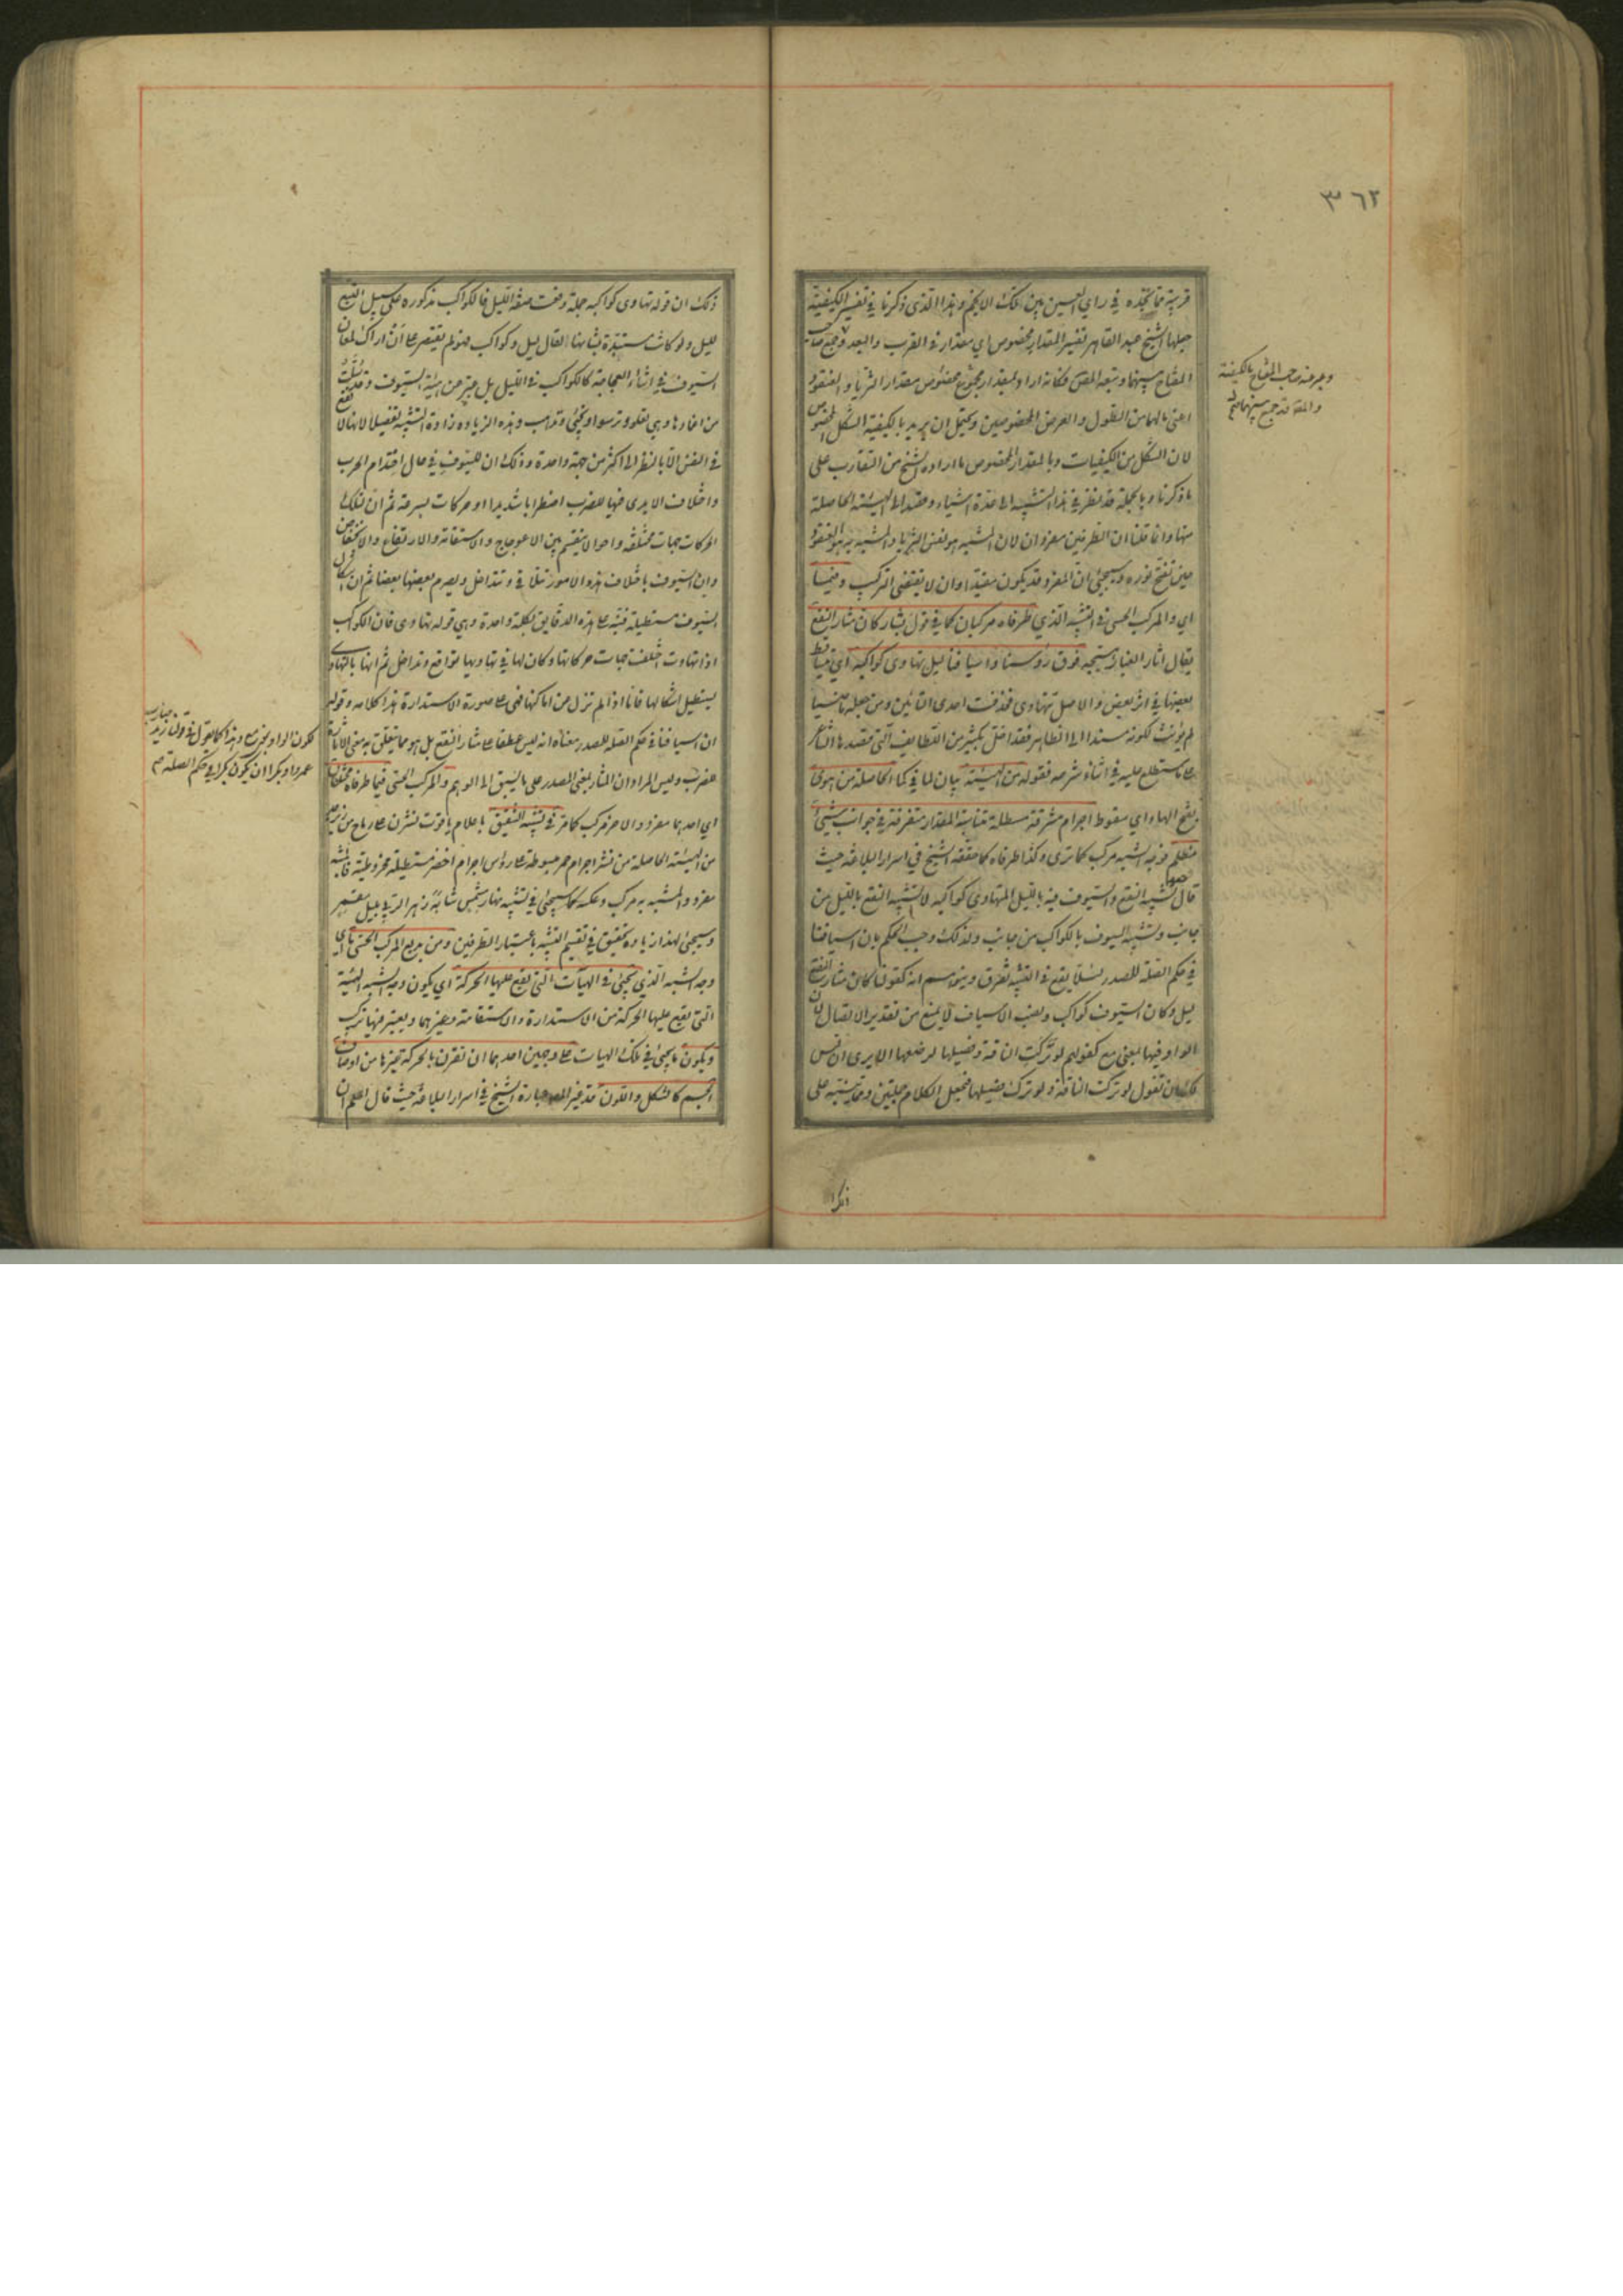 ٣٦٢
قريبة مما تجده في راي العين بين تلك الانجم وهذا الذي ذكرنا في تفسير الكيفية
جعلها الشيخ عبد القاهر تفسير المقدار مخصوص اي مقدار في القرب والبعد وجمع صاحب
المفتاح بينهما وتبعه المص فكانه اراد بمقدار مجموع مخصوص مقدار الثريا والعنقود
اعني مالهما من الطول والعرض المخصوصين ويحتمل ان يريد بالكيفية الشكل المخصوص
لان الشكل من الكيفيات وبالمقدار المخصوص ما اراده الشيخ من التقارب على
ما ذكرنا وبالجملة فقد نظر في هذا التشبيه الى عدة اشياء وقصد الى الهيئة الحاصلة
منها وانما قلنا ان الطرفين مفردان لان المشبه هو نفس الثريا والمشبه به هو العنقود
حين تفتح نوره وسيجئ ان المفرد قد يكون مقيدا وان لا يقتضي التركيب وفيما
اي والمركب الحسي في التشبيه الذي طرفاه مركبان كما في قول بشار كان مثار النقع
يقال اثار الغبار اي هيجه فوق رؤسنا واسيافنا ليل تهاوى كواكبه اي تتساقط
بعضها في اثر بعض والاصل تتهاوى فحذفت احدى التائين ومن جعله ماضيا
لم يؤنث لكونه مسندا الى الظاهر فقد اخل بكثير من اللطايف التي قصدها الشاعر
على ما ستطلع عليه في اثناء شرحه فقوله من الهيئة بيان لما في كما الحاصلة من هوى
بفتح الهاء اي سقوط اجرام مشرقة مستطيلة متناسبة المقدار متفرقة في جوانب شيئ
مظلم فوجه الشبه مركب كما ترى وكذا طرفاه كما حققه الشيخ في اسرار البلاغة حيث
قال تشبيه النقع والسيوف فيه بالليل المتهاوى كواكبه لا تشبيه النقع بالليل من
جانب وتشبيه السيوف بالكواكب من جانب ولذلك وجب الحكم بان اسيافنا
في حكم الصلة للمصدر لئلا يقع في التشبيه تفرق ويتوهم انه كقولنا كان مثار النقع
ليل وكان السيوف كواكب ونصب الاسياف لا يمنع من تقدير الاتصال لان
الواو فيها بمعنى مع كقولهم لو تركت الناقة وفصيلها لرضعها الا يرى ان ليس
لك ان تقول لو تركت الناقة ولو ترك فصيلها فتجعل الكلام جملتين ومما ينبه على
وعبر عنه صاحب المفتاح بالكيفية
ذلك ان قوله تهاوى كواكبه جملة وقعت صفة لليل فالكواكب مذكورة على سبيل التبع
لليل ولو كانت مستبدة بشانها لقال ليل وكواكب فهو لم يقتصر على ان اراك لمعان
السيوف في اثناء العجاجة كالكواكب في الليل بل عبر عن هيئة السيوف وقد سلت
من اغمادها وهي تعلو وترسوا وتجئ وتذهب وهذه الزيادة زادت التشبيه تفصيلا لانها لا تقع
في النفس الا بالنظر الى اكثر من جهة واحدة وذلك ان للسيوف في حال احتدام الحرب
واختلاف الايدى فيها للضرب اضطرابا شديدا وحركات بسرعة ثم ان لتلك
الحركات جهات مختلفة واحوالا ينقسم بين الاعوجاج والاستقامة والارتفاع والانخفاض
وان السيوف باختلاف هذه الامور تتلاقى وتتداخل ويصدم بعضها بعضا ثم ان اشكال
السيوف مستطيلة فنبه على هذه الدقايق بكلمة واحدة وهي قوله تهاوى فان الكواكب
اذا تهاوت اختلفت جهات حركاتها وكان لها في تهاويها تواقع وتداخل ثم انها بالتهاوى
يستطيل اشكالها فاما اذا لم تزل عن اماكنها فهي على صورة الاستدارة هذا كلامه وقوله
ان اسيافنا في حكم الصلة للمصدر معناه انه ليس عطفا على مثار النقع بل هو مما يتعلق به معنى الاثارة
وليس المراد ان المثار بمعنى المصدر على ما يسبق الى الوهم والمركب الحسي فيما طرفاه مختلفان
اي احدهما مفرد والاخر مركب كما مر في تشبيه الشقيق باعلام ياقوت نشرن على رماح من زبرجد
من الهيئة الحاصلة من نشر اجرام حمر مبسوطة على رؤس اجرام اخضر مستطيلة مخروطية فالمشبه
مفرد والمشبه به مركب وعكسه كما سيجئ في تشبيه نهار مشمس شابه زهر الربى بليل مقمر
وسيجئ لهذا زيادة تحقيق في تقسيم التشبيه باعتبار الطرفين ومن بديع المركب الحسي ما اي
وجه الشبه الذي يجئ في الهيآت التي تقع عليها الحركة اي يكون وجه الشبه الهيئة
التي تقع عليها الحركة من الاستدارة والاستقامة وغيرهما ويعتبر فيها تركب
ويكون ما يجئ في تلك الهيات على وجهين احدهما ان تقرن بالحركة غيرها من اوصاف
الجسم كالشكل واللون قد غير المص عبارة الشيخ في اسرار البلاغة حيث قال اعلم ان
لكون الواو بمعنى مع وهذا كما تقول في قولنا زيد ضارب
عمرو وبكرا ان يكون بكرا في حكم الصلة